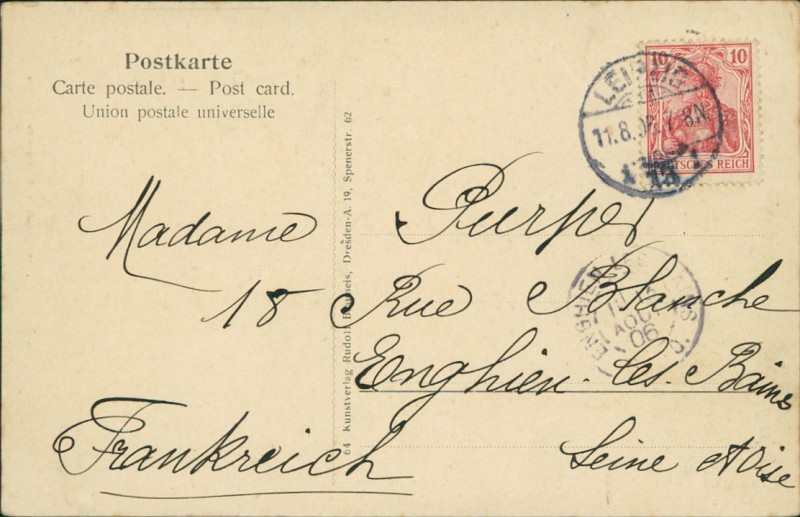 Postkarte
Carte postale. — Post card.
Union postale universelle
10
LEIPZIG
11.8.06. 7-8N.
13
DEUTSCHES REICH
Madame Purper
18 Rue Blanche
Enghien-les-Bains
Seine et Oise
Frankreich
64 Kunstverlag Rudolf Dresden-A. 19, Spenerstr. 62
ENGHIEN LES BAINS
AOUT
06